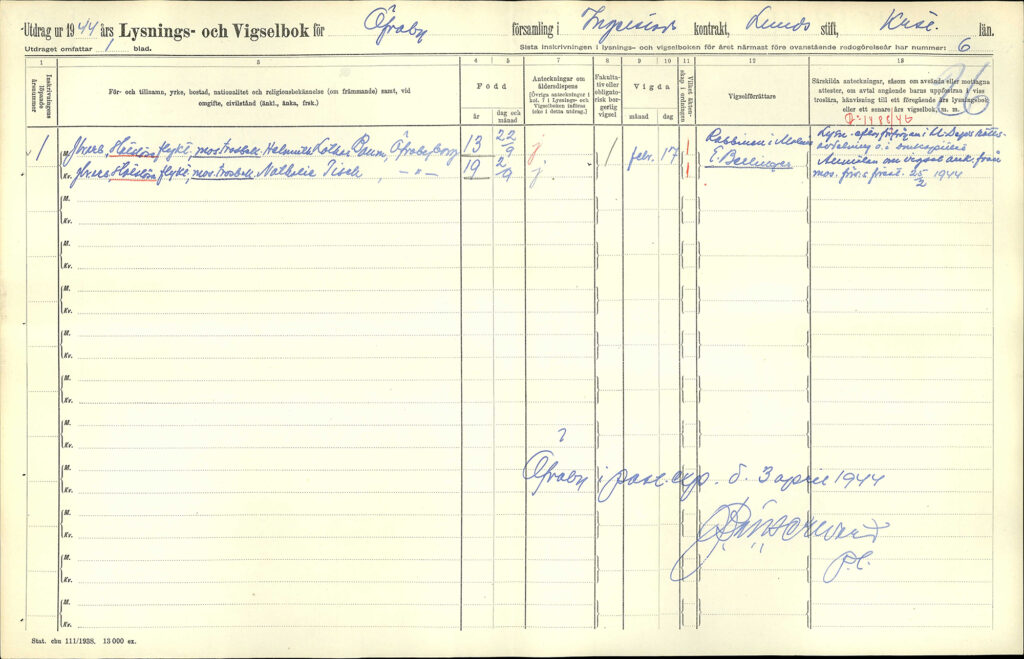 Utdrag ur 1944 års Lysnings- och Vigselbok för Öfraby församling i Ingelstad kontrakt, Lunds stift, Krist. län.
Utdraget omfattar 1 blad.
Sista inskrivningen i lysnings- och vigselboken för året närmast före ovanstående redogörelseår har nummer: 6
1 3 4 5 7 8 9 10 11 12 13
Inskrivningens löpande årsnummer
För- och tillnamn, yrke, bostad, nationalitet och religionsbekännelse (om främmande) samt, vid omgifte, civilstånd (änkl., änka, frsk.)
Född
år
dag och månad
Anteckningar om åldersdispens
(Övriga anteckningar i kol. 7 i Lysnings- och Vigselboken införas icke i detta utdrag.)
Fakultativ eller obligatorisk borgerlig vigsel
Vigda
månad
dag
Vilket äktenskap i ordningen
Vigselförrättare
Särskilda anteckningar, såsom om avsända eller mottagna attester, om avtal angående barns uppfostran i viss troslära, hänvisning till ett föregående års lysningsbok eller ett senare års vigselbok, m. m.
26
1488/46
1 M. flykt. mos. trosbek. Helmuth Lothar Baum, Öfraby 13 22/9 j 1 febr. 17 1 Rabbinen i Malmö
Kv. flykt. mos. trosbek. Nathalie Tisch, —"— 19 2/9 j 1 E. Berlinger
Anmälan om vigsel ank. från
mos. förs. först. 25/2 1944
M.
Kv.
M.
Kv.
M.
Kv.
M.
Kv.
M.
Kv.
M.
Kv.
M.
Kv.
M.
Kv.
M.
Kv.
Öfraby i past.exp. d. 3 april 1944
P.l.
Stat. cbu 111/1938. 13 000 ex.